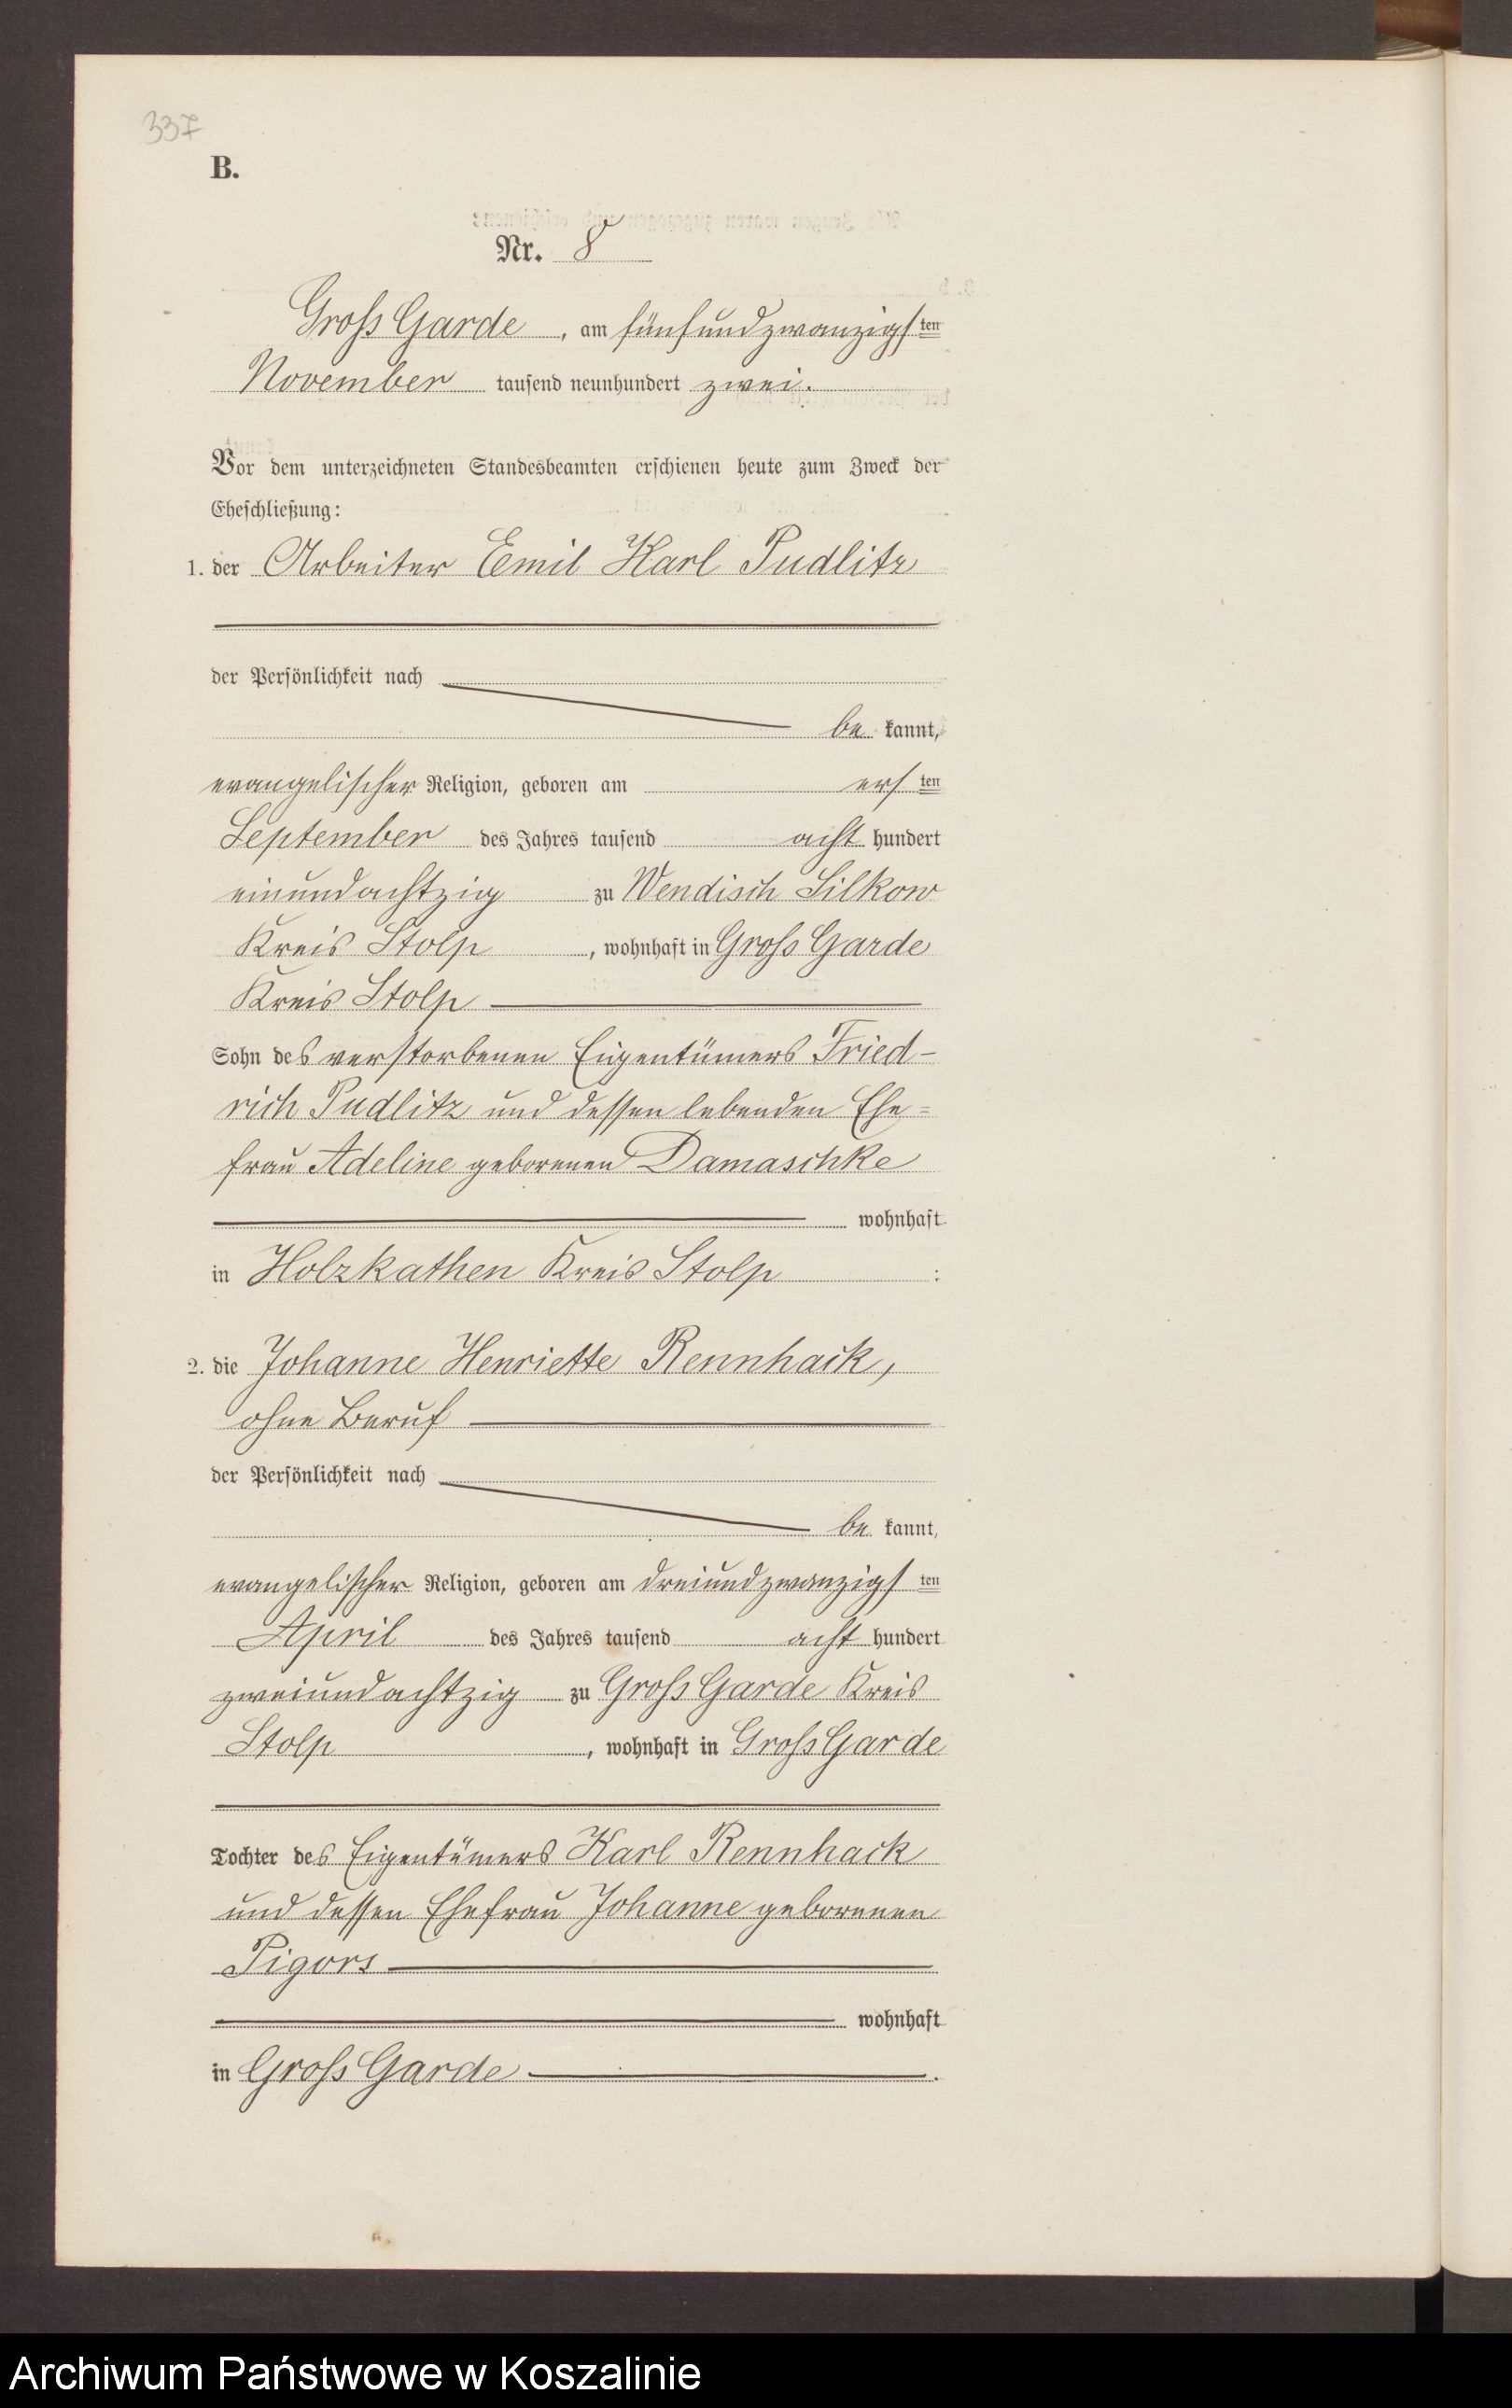 337
B.
Nr. 8
Gross Garde, am fünfundzwanzigsten
November tausend neunhundert zwei.
Vor dem unterzeichneten Standesbeamten erschienen heute zum Zweck der
Eheschließung:
1. der Arbeiter Emil Karl Pudlitz
der Persönlichkeit nach
be kannt,
evangelischer Religion, geboren am ersten
September des Jahres tausend acht hundert
einundachtzig zu Wendisch Silkow
Kreis Stolp, wohnhaft in Gross Garde
Kreis Stolp
Sohn des verstorbenen Eigentümers Fried-
rich Pudlitz und dessen lebenden Ehe=
frau Adeline geborenen Damaschke
wohnhaft
in Holzkathen Kreis Stolp :
2. die Johanne Henriette Rennhack,
ohne Beruf
der Persönlichkeit nach
be kannt,
evangelischer Religion, geboren am dreiundzwanzigsten
April des Jahres tausend acht hundert
zweiundachtzig zu Gross Garde Kreis
Stolp, wohnhaft in Gross Garde
Tochter des Eigentümers Karl Rennhack
und dessen Ehefrau Johanne geborenen
Pigors
wohnhaft
in Gross Garde.
Archiwum Państwowe w Koszalinie